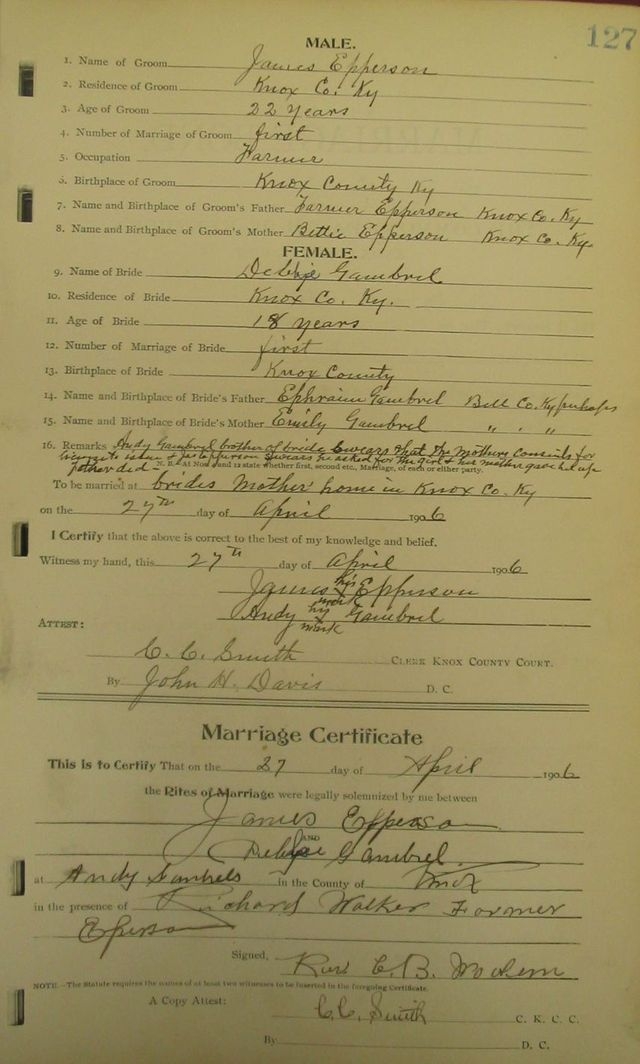 127
MALE.
1. Name of Groom James Epperson
2. Residence of Groom Knox Co. Ky
3. Age of Groom 22 years
4. Number of Marriage of Groom first
5. Occupation Farmer
6. Birthplace of Groom Knox County Ky
7. Name and Birthplace of Groom's Father Farmer Epperson Knox Co. Ky
8. Name and Birthplace of Groom's Mother Bettie Epperson Knox Co. Ky.
FEMALE.
9. Name of Bride Gambrel
10. Residence of Bride Knox Co. Ky.
11. Age of Bride 18 years
12. Number of Marriage of Bride first
13. Birthplace of Bride Knox County
14. Name and Birthplace of Bride's Father Ephraim Gambrel Bell Co. Ky perhaps
15. Name and Birthplace of Bride's Mother Emily Gambrel " . "
16. Remarks Andy Gambrel brother of bride swears that the mother consents for
license to issue & Jas Epperson swears he asked for the girl & her mother gave her up
father ded N. B.—At Nos. 4 and 12 state whether first, second etc., Marriage, of each or either party.
To be married at brides Mother' home in Knox Co. Ky
on the 27th day of April 1906
I Certify that the above is correct to the best of my knowledge and belief.
Witness my hand, this 27th day of April 1906
James his x mark Epperson
Andy his x mark Gambrel
ATTEST:
C. C. Smith CLERK KNOX COUNTY COURT.
By John H. Davis D. C.
Marriage Certificate
This is to Certify That on the 27 day of April 1906
the Rites of Marriage were legally solemnized by me between
James Epperso
AND
Gambrel
at Andy Gambrels in the County of Knox
in the presence of Richard Walker Farmer
Eperson
Signed, C. B.
NOTE.—The Statute requires the names of at least two witnesses to be inserted in the foregoing Certificate.
A Copy Attest: C. C. Smith C. K. C. C.
By D. C.